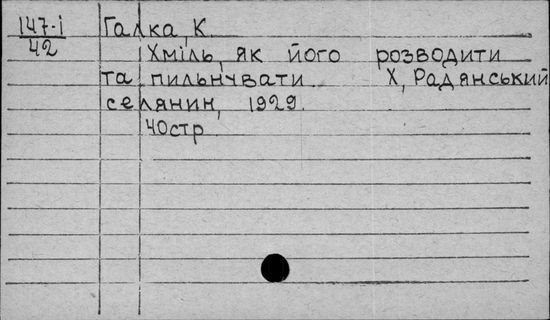 147-і Галка, К.
42 Хміль, як його розводити
та пильнувати. Х, Радянський
селянин, 1929.
40стр